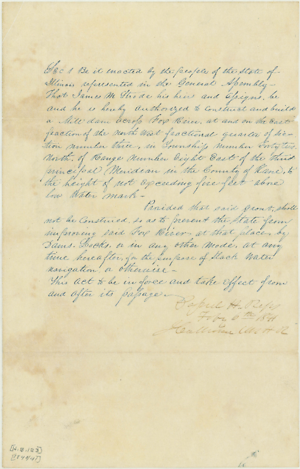 Sec 1 Be it enacted by the people of the State of
Illinois represented in the General Assembly
That James M. his heirs and assigns, be
and he is hereby authorized to construct and build
a Mill dam across Fox River, at and on the East
fraction of the North West fractional quarter of Sec
tion number three, in Township number Forty two
North, of Range number Eight East of the third
principal Meridian in the County of Kane, to
the height of not exceeding five feet above
low Water mark.
Provided that said grant shall
not be construed, so as to prevent the State from
improving said Fox River at that place by
Dams, Locks, or in any other mode, at any
time hereafter, for the purpose of Slack Water
navigation, or otherwise.
This Act to be in force and take effect from
and after its passage.